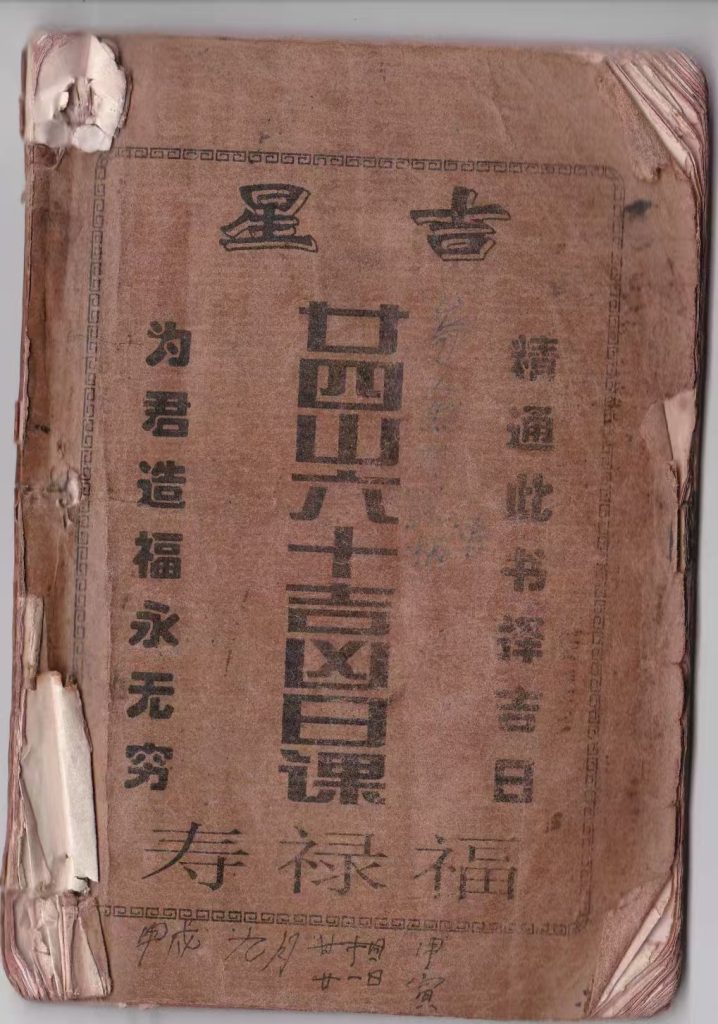 吉星
精通此书译吉日
廿四山六十吉凶日课
为君造福永无穷
福禄寿
甲戌 九月 廿一日 甲寅